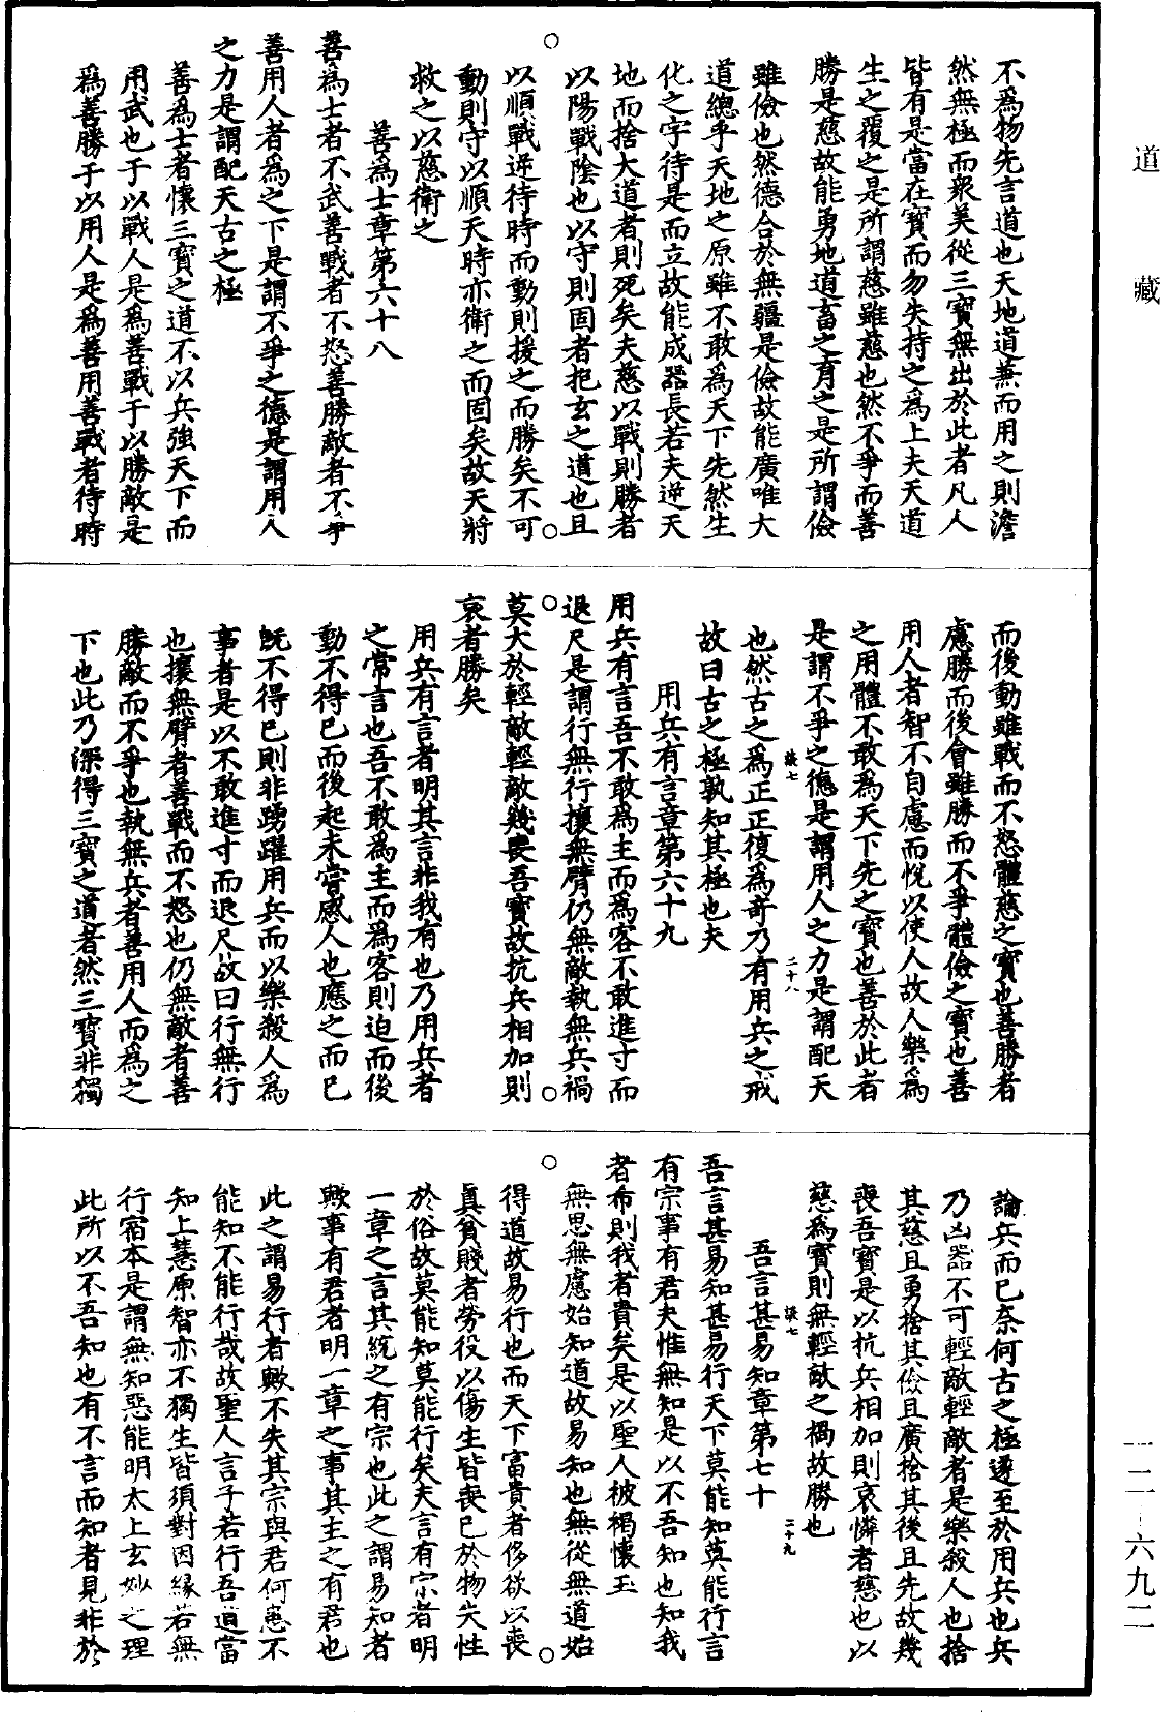 道藏
不為物先言道也天地道無而用之則澹
然無極而衆美從三寶無出於此者凡人
皆有是當在寶而勿失持之為上夫天道
生之覆之是所謂慈雖慈也然不爭而善
勝是慈故能勇地道畜之育之是所謂儉
雖儉也然德合於無疆是儉故能廣唯大
道總乎天地之原雖不敢為天下先然生
化之宇待是而立故能成器長若夫逆天
地而捨大道者則死矣夫慈以戰則勝者
以陽戰陰也以守則固者把玄之道也且
以順戰逆待時而動則援之而勝矣不可
動則守以順天時亦衛之而固矣故天將
救之以慈衛之
善為士章第六十八
善為士者不武善戰者不怒善勝敵者不爭
善用人者為之下是謂不爭之德是謂用人
之力是謂配天古之極
善為士者懷三寶之道不以兵強天下而
用武也于以戰人是為善戰于以勝敵是
為善勝于以用人是為善用善戰者待時
而後動雖戰而不怒體慈之寶也善勝者
慮勝而後會雖勝而不爭體儉之寶也善
用人者智不自慮而悅以使人故人樂為
之用體不敢為天下先之寶也善於此者
是謂不爭之德是謂用人之力是謂配天
談七
二十八
也然古之為正正復為奇乃有用兵之戒
故曰古之極孰知其極也夫
用兵有言章第六十九
用兵有言吾不敢為主而為客不敢進寸而
退尺是謂行無行攘無臂仍無敵執無兵禍
莫大於輕敵輕敵幾喪吾寶故抗兵相加則
哀者勝矣
用兵有言者明其言非我有也乃用兵者
之常言也吾不敢為主而為客則迫而後
動不得已而後起未嘗感人也應之而已
既不得已則非踴躍用兵而以樂殺人為
事者是以不敢進寸而退尺故曰行無行
也攘無臂者善戰而不怒也仍無敵者善
勝敵而不爭也執無兵者善用人而為之
下也此乃深得三寶之道者然三寶非獨
論兵而已奈何古之極遂至於用兵也兵
乃凶器不可輕敵輕敵者是樂殺人也捨
其慈且勇捨其儉且廣捨其後且先故幾
喪吾寶是以抗兵相加則哀憐者慈也以
慈為寶則無輕敵之禍故勝也
談七
二十九
吾言甚易知章第七十
吾言甚易知甚易行天下莫能知莫能行言
有宗事有君夫惟無知是以不吾知也知我
者希則我者貴矣是以聖人被褐懷玉
無思無慮始知道故易知也無從無道始
得道故易行也而天下富貴者侈欲以喪
真貧賤者勞役以傷生皆喪已於物失性
於俗故莫能知莫能行矣夫言有宗者明
一章之言其統之有宗也此之謂易知者
歟事有君者明一章之事其主之有君也
此之謂易行者歟不失其宗與君何患不
能知不能行哉故聖人言子若行吾道當
知上慧原智亦不獨生皆須對因緣若無
行宿本是謂無知惡能明太上玄妙之理
此所以不吾知也有不言而知者見非於
一二－六九二